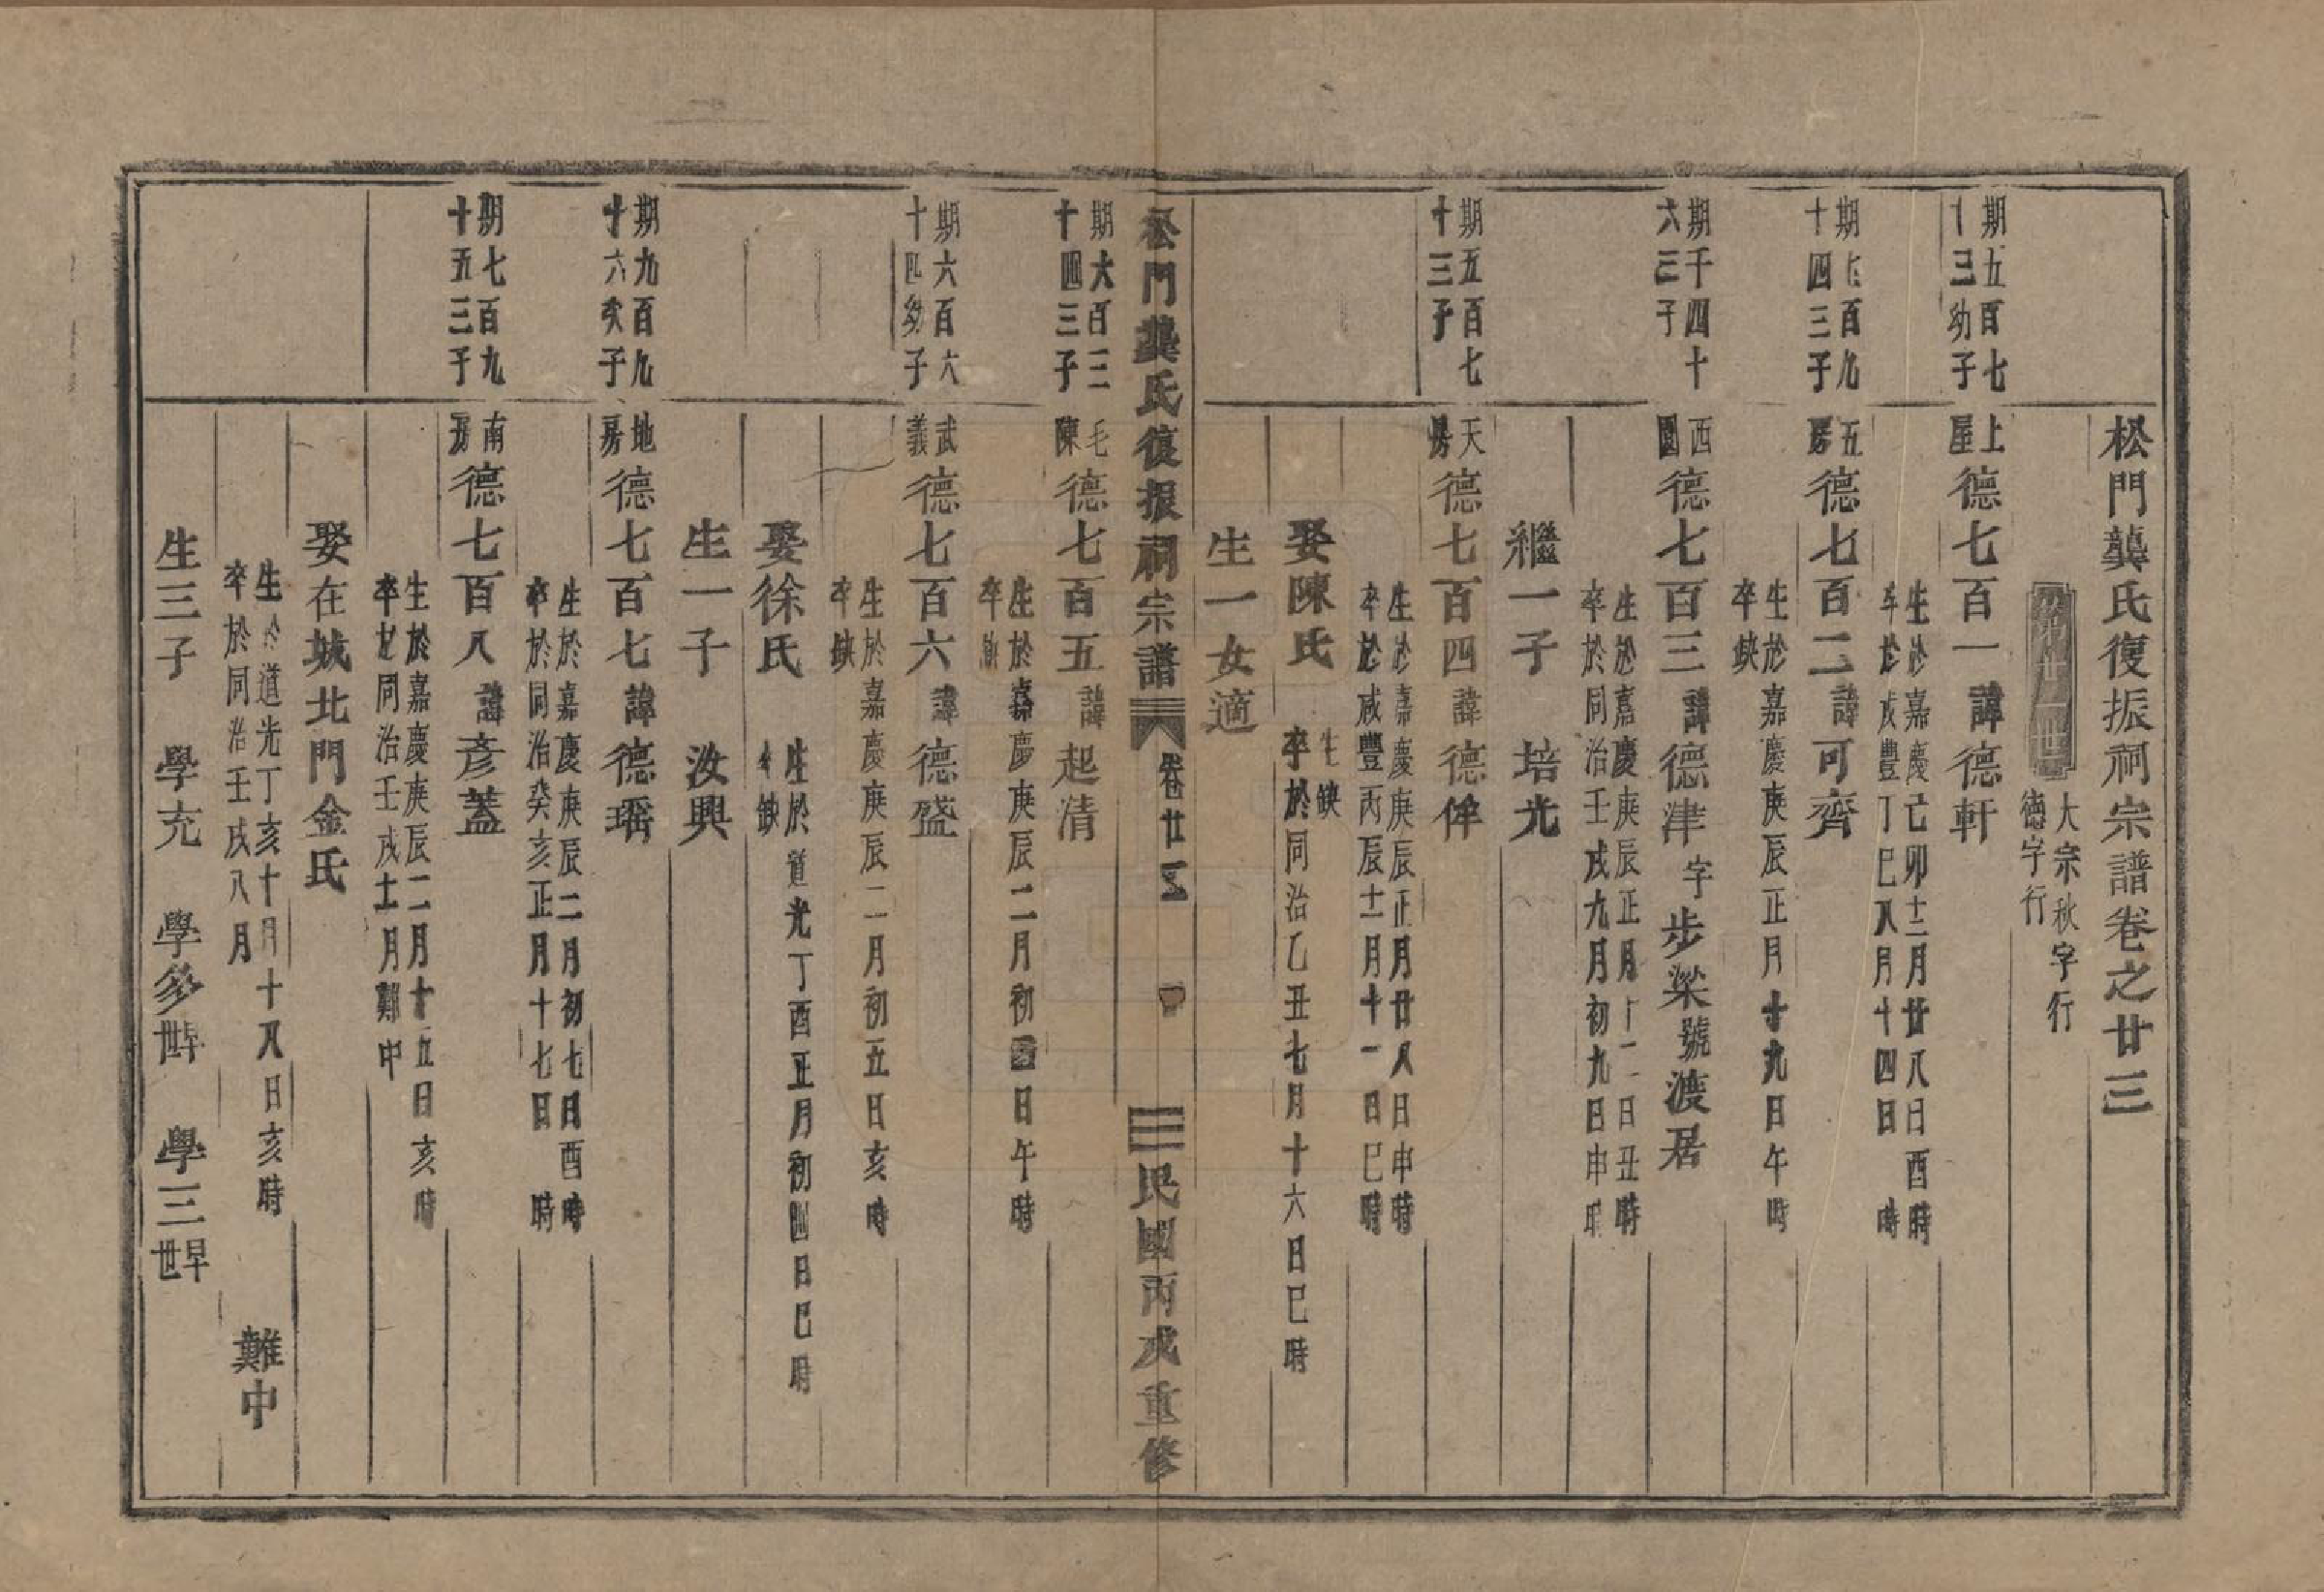 松門龔氏復振祠宗譜卷之廿三
大宗秋字行
德字行
期五百七
十三幼子
上屋
德七百一諱德軒
生於嘉慶己卯十二月廿八日酉時
卒於咸豐丁巳八月十四日 時
期七百九
十四三子
五房
德七百二諱可齊
生於嘉慶庚辰正月十九日午時
卒缺
期千四十
六三子
西園
德七百三諱德津字步梁號渡居
生於嘉慶庚辰正月十二日丑時
卒於同治壬戌九月初九日申時
繼一子 培光
期五百七
十三子
天房
德七百四諱德侔
生於嘉慶庚辰正月廿八日申時
卒於咸豐丙辰十二月十一日巳時
娶陳氏
生缺
卒於同治乙丑七月十六日巳時
生一女適
松門龔氏復振祠宗譜 卷廿三 四 民國丙戌重修
期六百二
十四三子
毛陳
德七百五諱起清
生於嘉慶庚辰二月初四日午時
卒缺
期六百六
十四幼子
武義
德七百六諱德盛
生於嘉慶庚辰二月初五日亥時
卒缺
娶徐氏
生於道光丁酉正月初四日巳時
卒缺
生一子 汝興
期九百九
十六次子
地房
德七百七諱德瑶
生於嘉慶庚辰二月初七日酉時
卒於同治癸亥正月十七日 時
期七百九
十五三子
南房
德七百八諱彥蓋
生於嘉慶庚辰二月十五日亥時
卒於同治壬戌十二月難中
娶在城北門金氏
生於道光丁亥十月十八日亥時
卒於同治壬戌八月 難中
生三子 學充 學多早世 學三早世